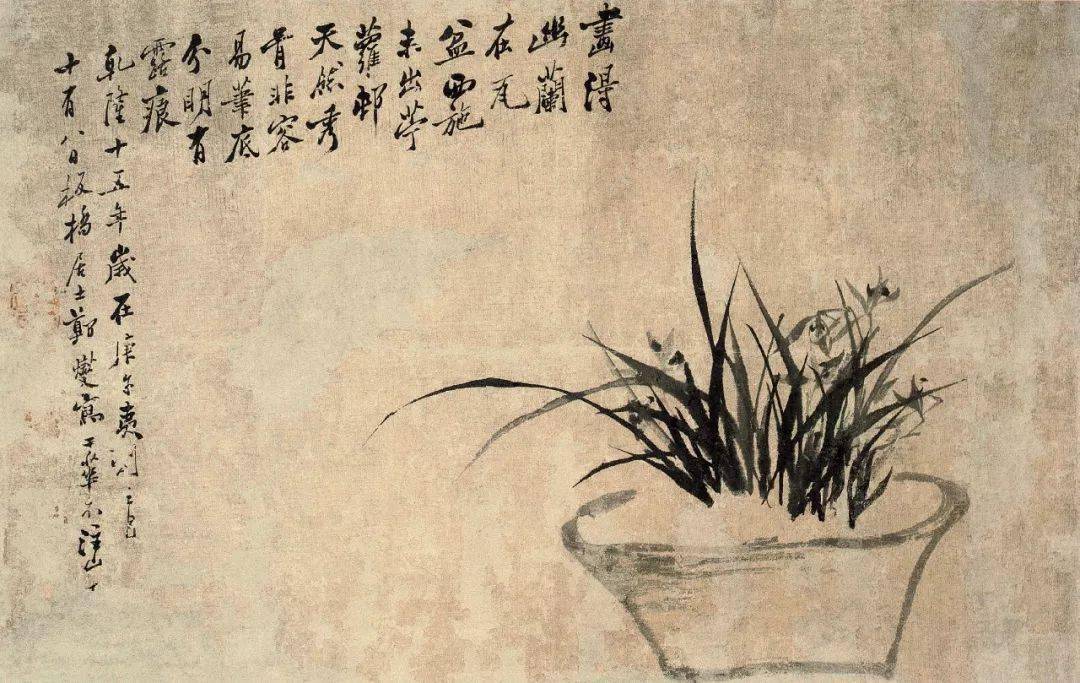 畫得
幽蘭
在瓦
盆西施
未出苧
蘿邨
天然秀
骨非容
易筆底
分明有
露痕
乾隆十五年歲在庚午夷則之
十有八日板橋居士鄭燮寫于華不注山